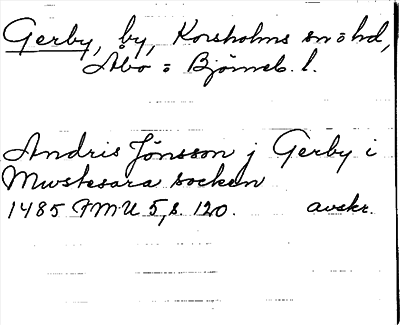 Gerby, by, Korsholms sn o hd,
Åbo o Björneb. l.
Andris Jönsson j Gerby i
Mwstesara socken
1485 FMU 5, s. 120. avskr.